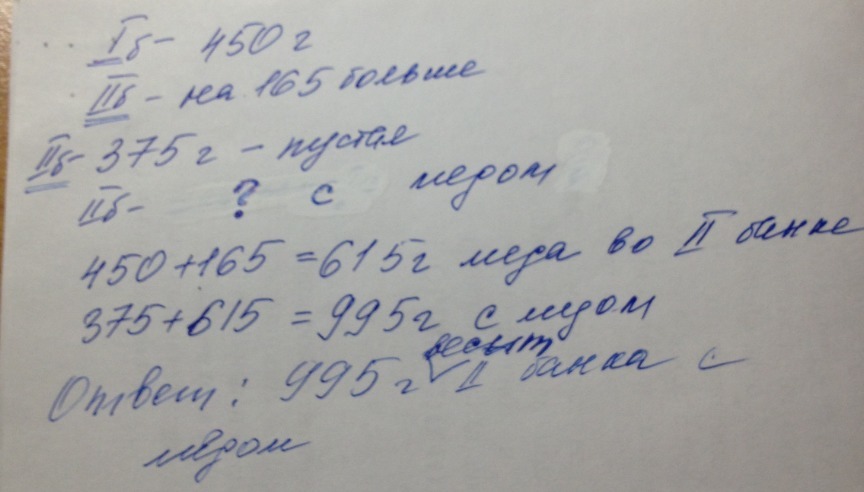 I б - 450 г
II б - на 165 больше
II б - 375 г - пустая
II б - ? с медом
450+165 = 615 г меда во II банке
375+615 = 995 г с мдом
весит
Ответ: 995 г √ II банка с
мёдом